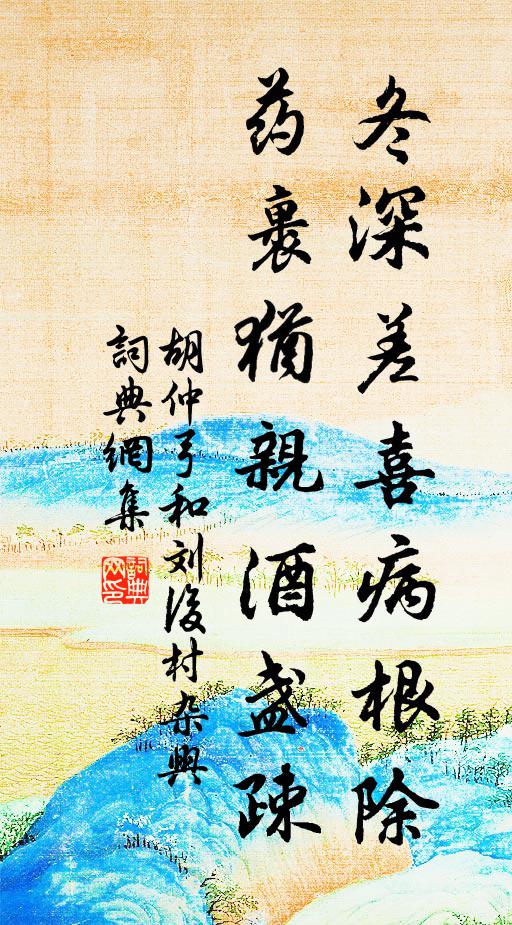 冬深差喜病根除
药裹猶親酒盏疎
胡仲弓和刘後村杂興
詞典網集
詞典网印